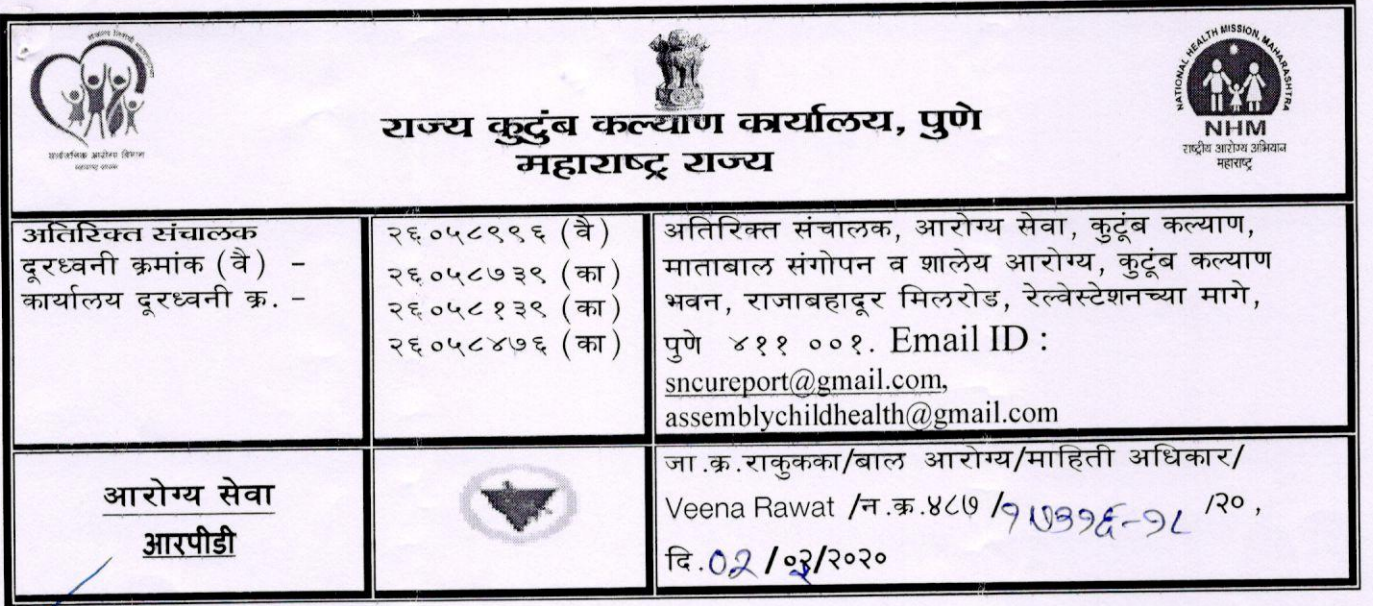 राज्य कुटुंब कल्याण कार्यालय, पुणे
महाराष्ट्र राज्य
NATIONAL HEALTH MISSION, MAHARASHTRA
NHM
राष्ट्रीय आरोग्य अभियान
महाराष्ट्र
सार्वजनिक आरोग्य विभाग
अतिरिक्त संचालक
दूरध्वनी क्रमांक (वै) -
कार्यालय दूरध्वनी क्र. -
२६०५८९९६ (वै)
२६०५८७३९ (का)
२६०५८१३९ (का)
२६०५८४७६ (का)
अतिरिक्त संचालक, आरोग्य सेवा, कुटूंब कल्याण,
माताबाल संगोपन व शालेय आरोग्य, कुटूंब कल्याण
भवन, राजाबहादूर मिलरोड, रेल्वेस्टेशनच्या मागे,
पुणे ४११ ००१. Email ID :
sncureport@gmail.com,
assemblychildhealth@gmail.com
आरोग्य सेवा
आरपीडी
जा.क्र.राकुकका/बाल आरोग्य/माहिती अधिकार/
Veena Rawat /न.क्र.४८७ /१७३१६-१८ /२०,
दि.02/०३/२०२०